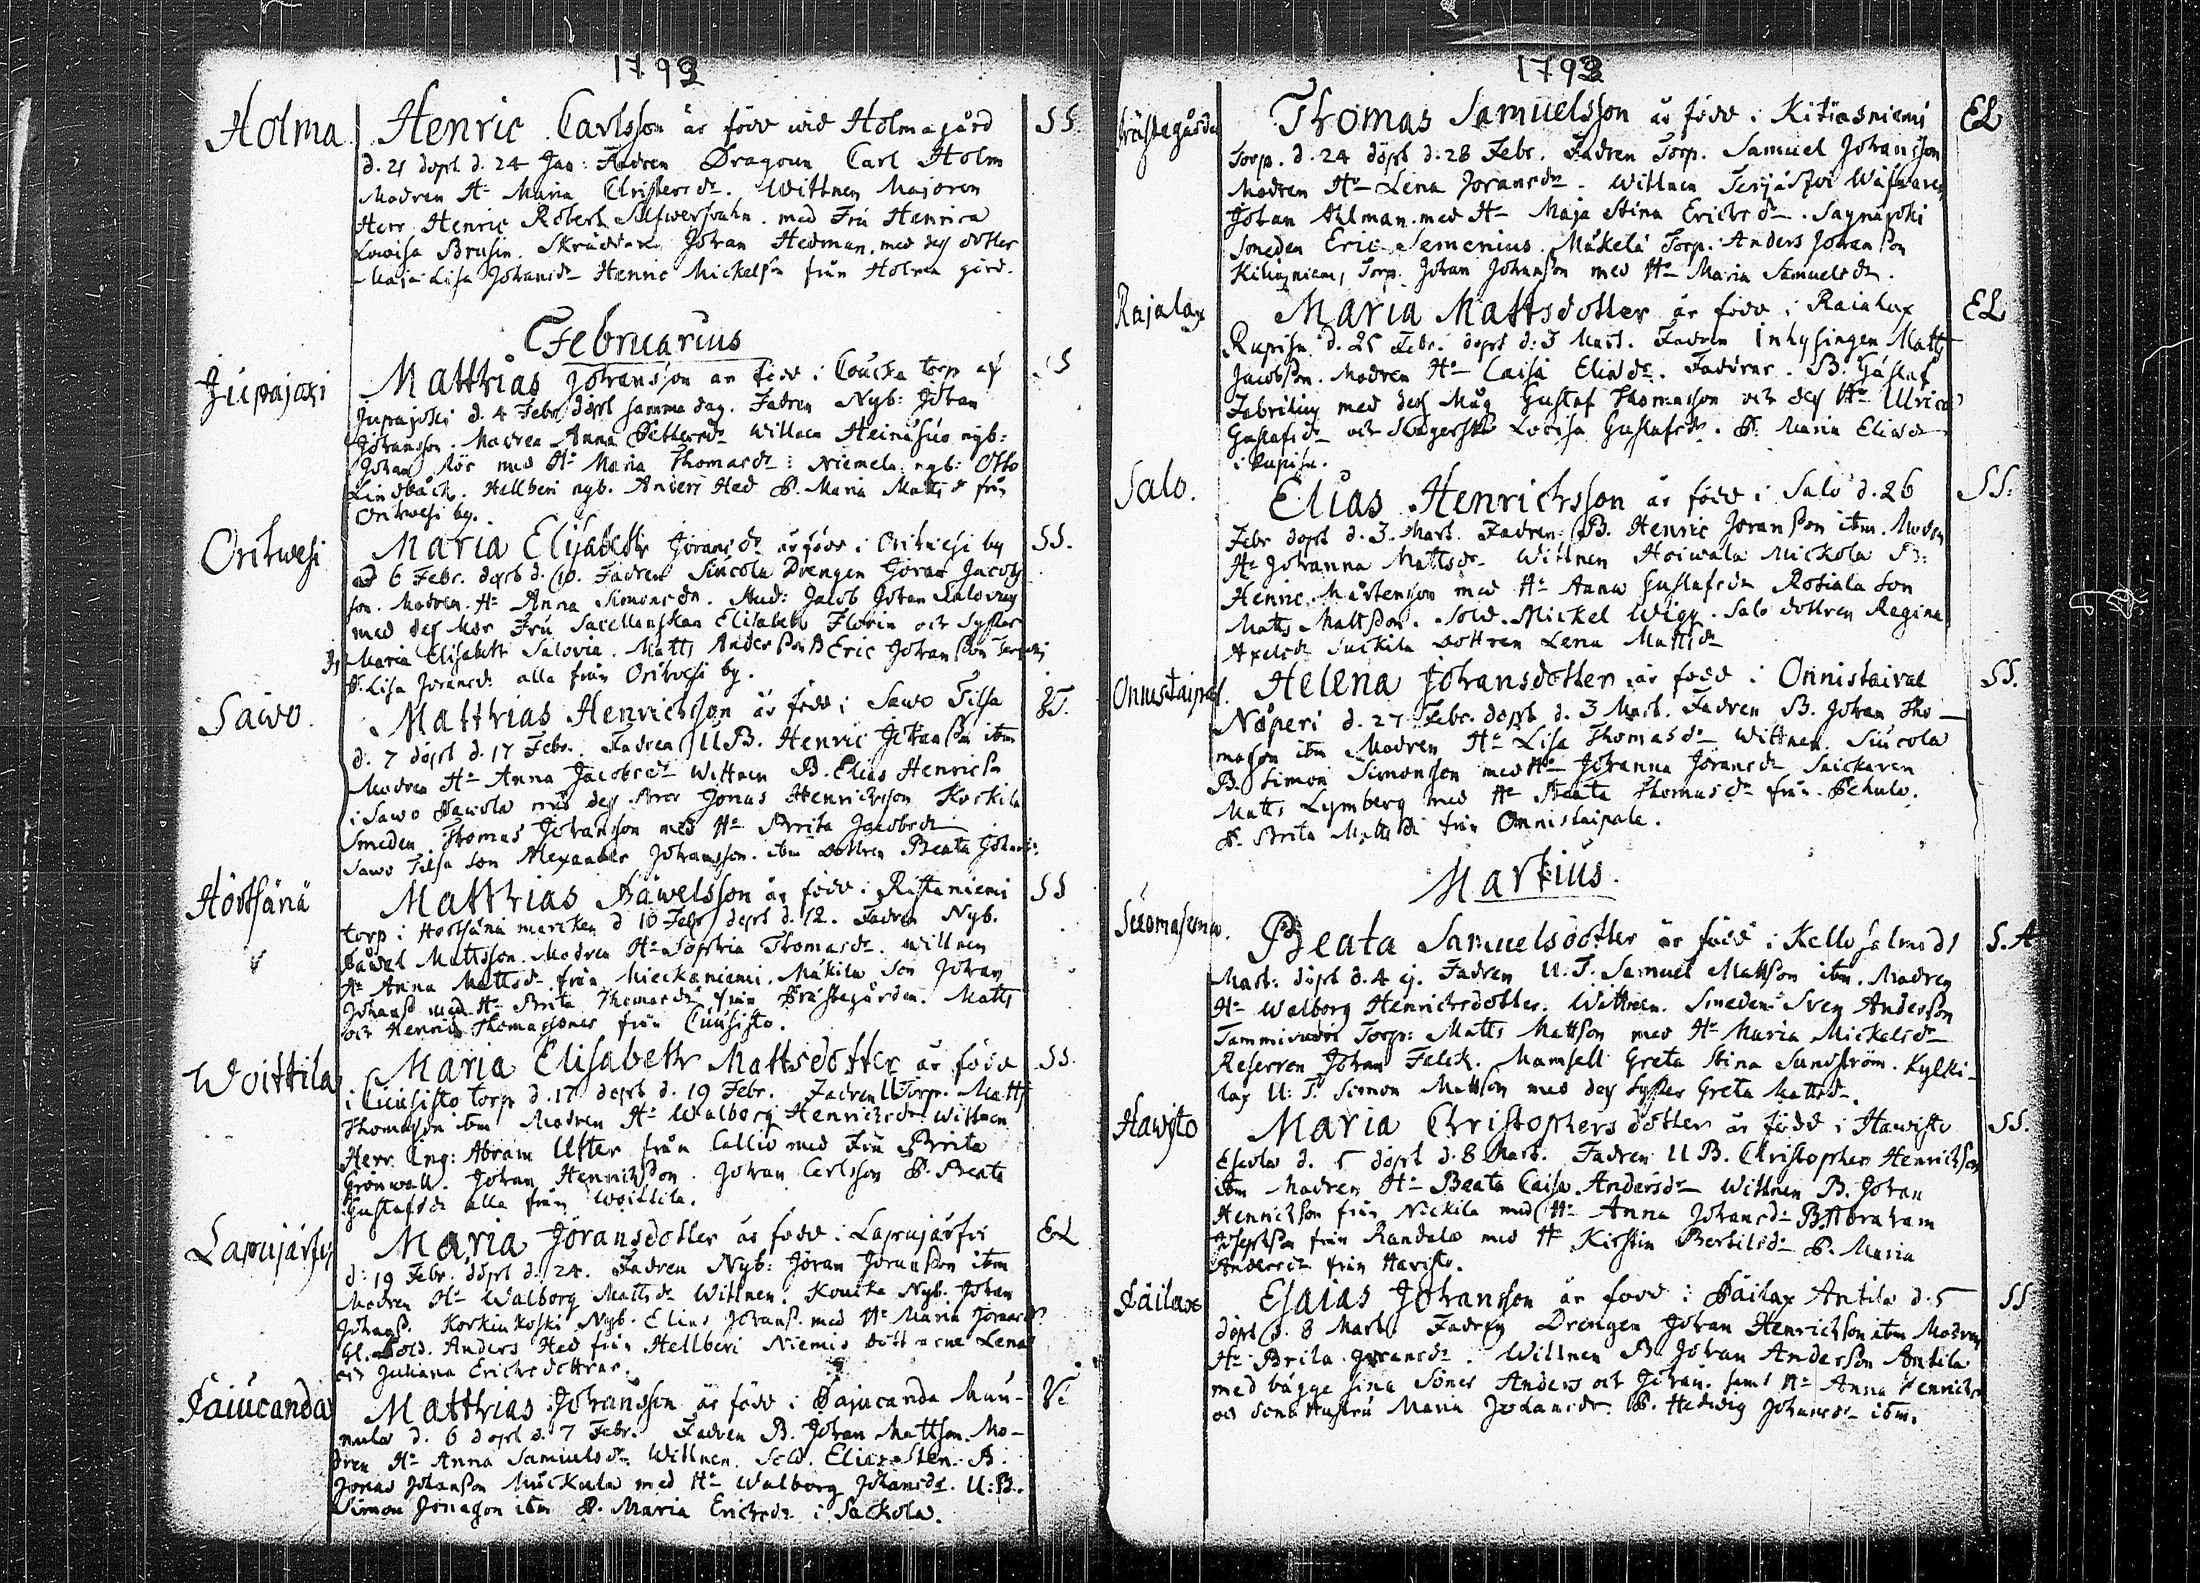 1793
Holma Henric Carlsson är född wid Holmagård SS.
d. 21 döpt d. 24 Jan: Fadren Dragoun Carl Holm
Modren Ha Maria Christersdr. Wittnen Majoren
Herr Henric Robert med Fru Henrica
Lowisa Brusin. Johan Hedman, med dess dotter
Maja Lisa Johansdr Henric Mickelsn från Holma gård.
Februarius
Jupajoki Matthias Johansson är född i Coucka torp af SS
Jupajoki d. 4 Febr döpt samma dag. Fadren Nyb: Johan
Johansson. Modren Anna Pettersdr Wittnen Heinäsuo nyb:
Johan Rör med Ha Maria Thomasdr: Niemela nyb: Otto
Lindbäck. Hellberi nyb. Anders Hed P. Maria Matts dr från
Orihwesi by.
Orihwesi Maria Elisabeth Jöransdr är född i Orihwesi by SS.
d 6 Febr. döpt d. 10. Fadren Siucola Drengen Jöran Jacobs
son. Modren Ha Anna Simonsdr. Stud: Jacob Johan Salovius
med dess Mor Fru Sacellanskan Elisabeth Florin och Syster
Maria Elisabeth Salovia. Matts Andersson B Eric Johansson
P. Lisa Jöransdr alla från Orihwesi by.
Sawo. Matthias Henricsson är född i Sawo Tilsa
d. 7 döpt d. 17 Febr. Fadren UB. Henric Johansson ibm
Modren Ha Anna Jacobsdr Wittnen B. Elias Henricsn
i Sawo Pawola med dess Bror Jonas Henricsson Korkila
Smeden Thomas Johansson med Ha Brita Jacobsdr
Sawo Tilsa Son Alexander Johansson. ibm Dottren Beata Johansdr:
Hörtsänä Matthias Påwelsson är född i Ristaniemi SS
torp i Hörtsänä marcken d 10 Febr döpt d. 12. Fadren Nyb.
Påwel Mattsson. Modren Ha Sophia Thomasdr. Wittnen
Ha Anna Mattsdr från Mieckaniemi. Mäkilä Son Johan
Johanss med Ha Brita Thomasdr från Prästegården. Matts
och Henric Thomassöner från Cuusisto.
Woittila Maria Elisabeth Mattsdotter är född SS.
i Cuusisto torp d. 17 döpt d. 19 Febr. Fadren UTorp. Matts
Thomasson ibm Modren Ha Walborg Henricsdr Wittnen
Herr Ing: Abram Utter från Callio med Fru Brita
Grönwall. Johan Henricsson. Johan Carlsson P. Beata
Gustafsdr alla från Woittila.
Lapujärfwi Maria Jöransdotter är född i Lapujärfwi EL
d: 19 Febr. döpt d. 24. Fadren Nyb: Jöran Jöransson ibm
Modren Ha Walborg Mattsdr Wittnen. Koucka Nyb. Johan
Johanss. Korkiukoski Nyb. Elias Johanss. med Ha Maria Jöransdr
Gl. Sold. Anders Hed från Hellberi Niemis döttrarne Lena
och Juliana Ericsdöttrar.
Pajucanda Matthias Johansson är född i Pajucanda Mau-
nula d. 6 döpt d. 7 Febr. Fadren B. Johan Mattson. Mo-
dren Ha Anna Samuelsdr Wittnen. Sold. Elias Sten. B.
Jonas Johansson Muckula med Ha Walborg Johansdr. U:B.
Simon Jonasson ibm P. Maria Ericsdr i Sackola.
1793
Prästegården Thomas Samuelsson är född i Kitiasniemi EL
Torp. d. 24 döpt d. 28 Febr. Fadren Torp. Samuel Johansson
Modren Ha Lena Jöransdr. Wittnen
Johan Ahlman med Ha Maja Stina Ericsdr. Saynäjoki
Smeden Eric Semenius. Mäkelä Torp. Anders Johansson
Torp. Johan Johansson med Ha Maria Samuelsdr.
Rajalax Maria Mattsdotter är född i Rajalax EL
Rupisu d. 25 Febr. döpt d: 3 Mart. Fadren Inhysingen Matts
Jacobsson. Modren Ha Caisa Eliedr. Faddrar. B. Gustaf
med dess Måg Gustaf Thomasson och dess Ha Ulrica
Gustafsdr och Lovisa Gustafsdr. P. Maria Eliedr
i Rupisu.
Salo. Elias Henricsson är född i Salo d. 26 SS:
Febr döpt d. 3. Mart. Fadren B. Henric Jöransson ibm. Modren
Ha Johanna Mattsdr Wittnen Hoiwala Mickola B:
Henric Mårtensson med Ha Anna Gustafsdr Rosiala Son
Matts Mattsson. Sold. Mickel Wigg. Salo dottren Regina
Axelsdr Suickila Dottren Lena Mattsdr
Onnistaipal. Helena Johansdotter är född i Onnistaival SS.
Näperi d. 27 Febr. döpt d. 3 Mart. Fadren B. Johan Tho-
masson ibm Modren Ha Lisa Thomasdr Wittnen Siucola
B. Simon Simonsson med Ha Johanna Jöransdr
Matts Lymberg med Ha Beata Thomasdr från Pehula.
P. Brita Mattsdr från Onnistaipale.
Martius.
Suomasema. Beata Samuelsdotter är född i d 1 S.A
Mart: döpt d. 4 ej. Fadren U.T. Samuel Mattson ibm. Modren
Ha Walborg Henricsdotter. Wittnen. Smeden Sven Andersson
Torp: Matts Mattson med Ha Maria Mickelsdr
Reserven Johan Falck. Mamsell Greta Stina Sundström. Kylki-
lax U: T. Simon Mattson med dess Syster Greta Mattsdr.
Hawisto Maria Christophersdotter är född i Hawisto SS.
Escola d. 5 döpt d. 8 Mart. Fadren U B. Christopher Henricsson
ibm Modren Ha Beata Caisa Andersdr Wittnen B. Johan
Henricson från Nickila med Ha Anna Johansdr B. Abraham
Josephson från Randala med Ha Kirstin Bertilsdr P. Maria
Andersdr från Havisto.
Päilax Esaias Johansson är född i Päilax Antila d. 5 SS
döpt d. 8 Mart. Fadren Drengen Johan Henricson ibm Modren
Ha Brita Jöransdr. Wittnen B. Johan Anderson Antila
med bägge sina Söner Anders och Johan. samt Ha Anna Henricsdr
och Sona Hustru Maria Jordansdr. P. Hedvig Johansdr ibm.